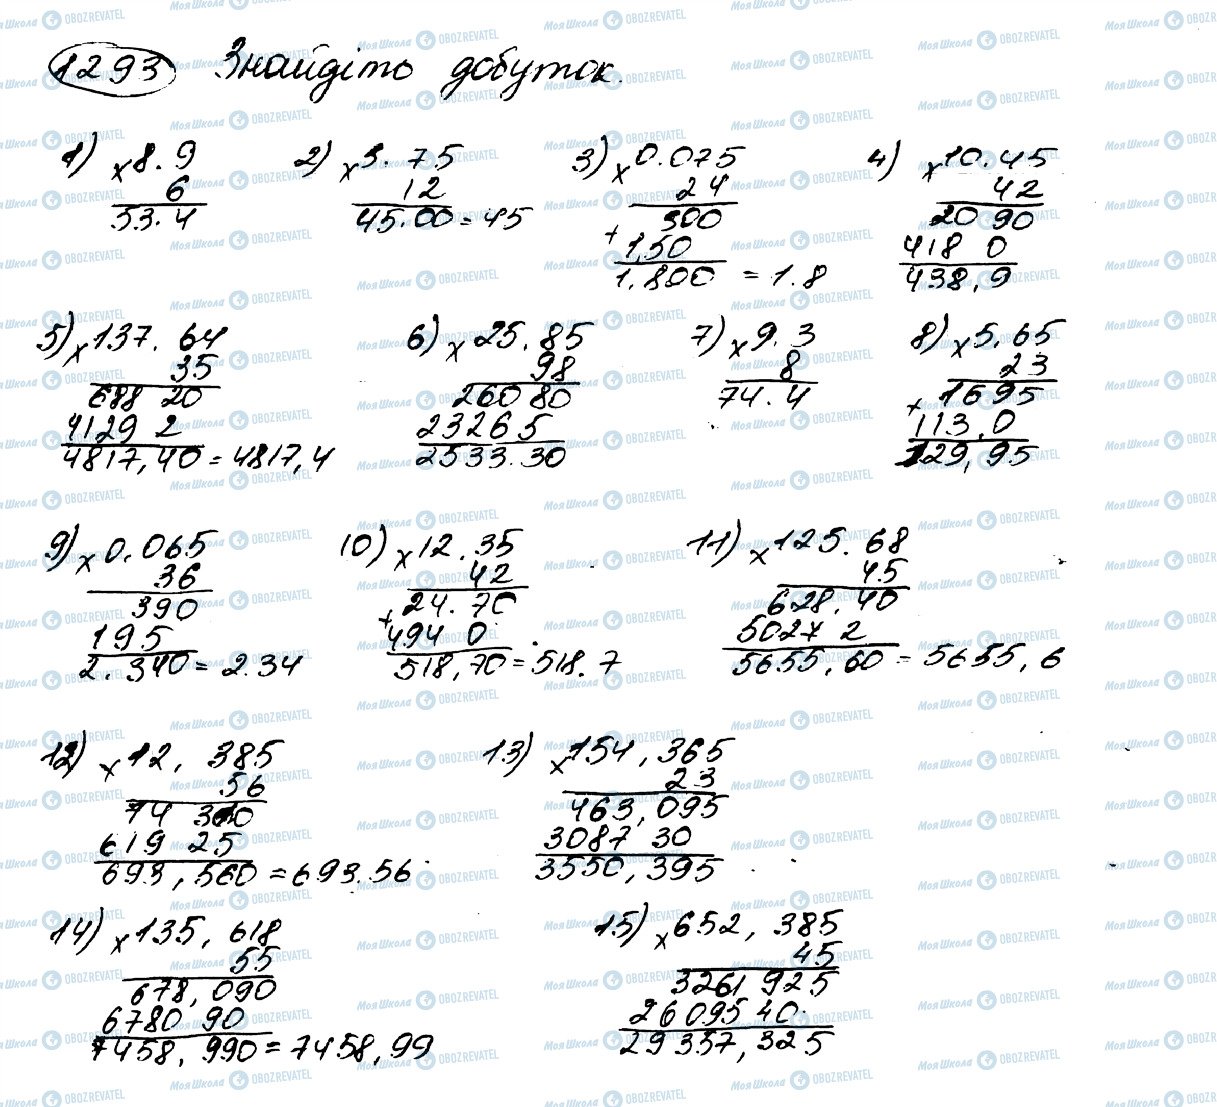 1293 Знайдіть добуток.
1) × 8.9
6
53.4
2) × 3.75
12
45.00 = 45
3) × 0.075
24
300
+ 1,50
1,800 = 1.8
4) × 10.45
42
20 90
418 0
438,9
5) × 137.64
35
688 20
4129 2
4817,40 = 4817,4
6) × 25.85
98
260 80
2326 5
2533.30
7) × 9.3
8
74.4
8) × 5,65
23
+ 1695
113,0
129,95
9) × 0.065
36
390
195
2.340 = 2.34
10) × 12.35
42
+ 24.70
494 0
518,70 = 518.7
11) × 125.68
45
628,40
5027 2
5655,60 = 5655,6
12) × 12,385
56
74 310
619 25
693,560 = 693.56
13) × 154,365
23
463,095
3087 30
3550,395
14) × 135,618
55
678,090
6780 90
7458,990 = 7458,99
15) × 652,385
45
3261 925
26095 40
29357,325
Моя Школа OBOZREVATEL